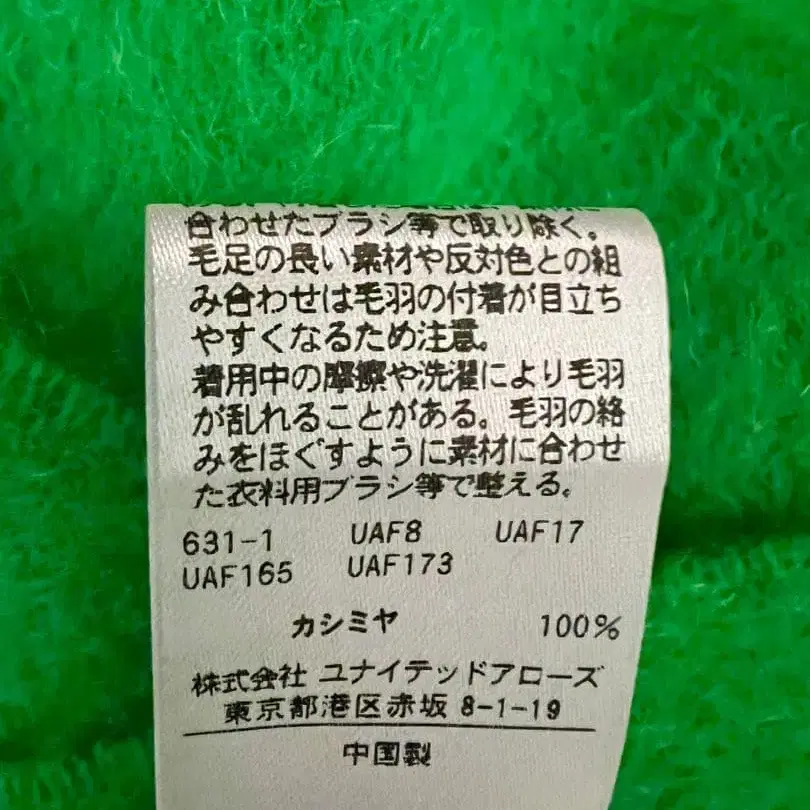 合わせたブラシ等で取り除く。
毛足の長い素材や反対色との組
み合わせは毛羽の付着が目立ち
やすくなるため注意。
着用中の摩擦や洗濯により毛羽
が乱れることがある。毛羽の絡
みをほぐすように素材に合わせ
た衣料用ブラシ等で整える。
631-1 UAF8 UAF17
UAF165 UAF173
カシミヤ 100%
株式会社 ユナイテッドアローズ
東京都港区赤坂 8-1-19
中国製